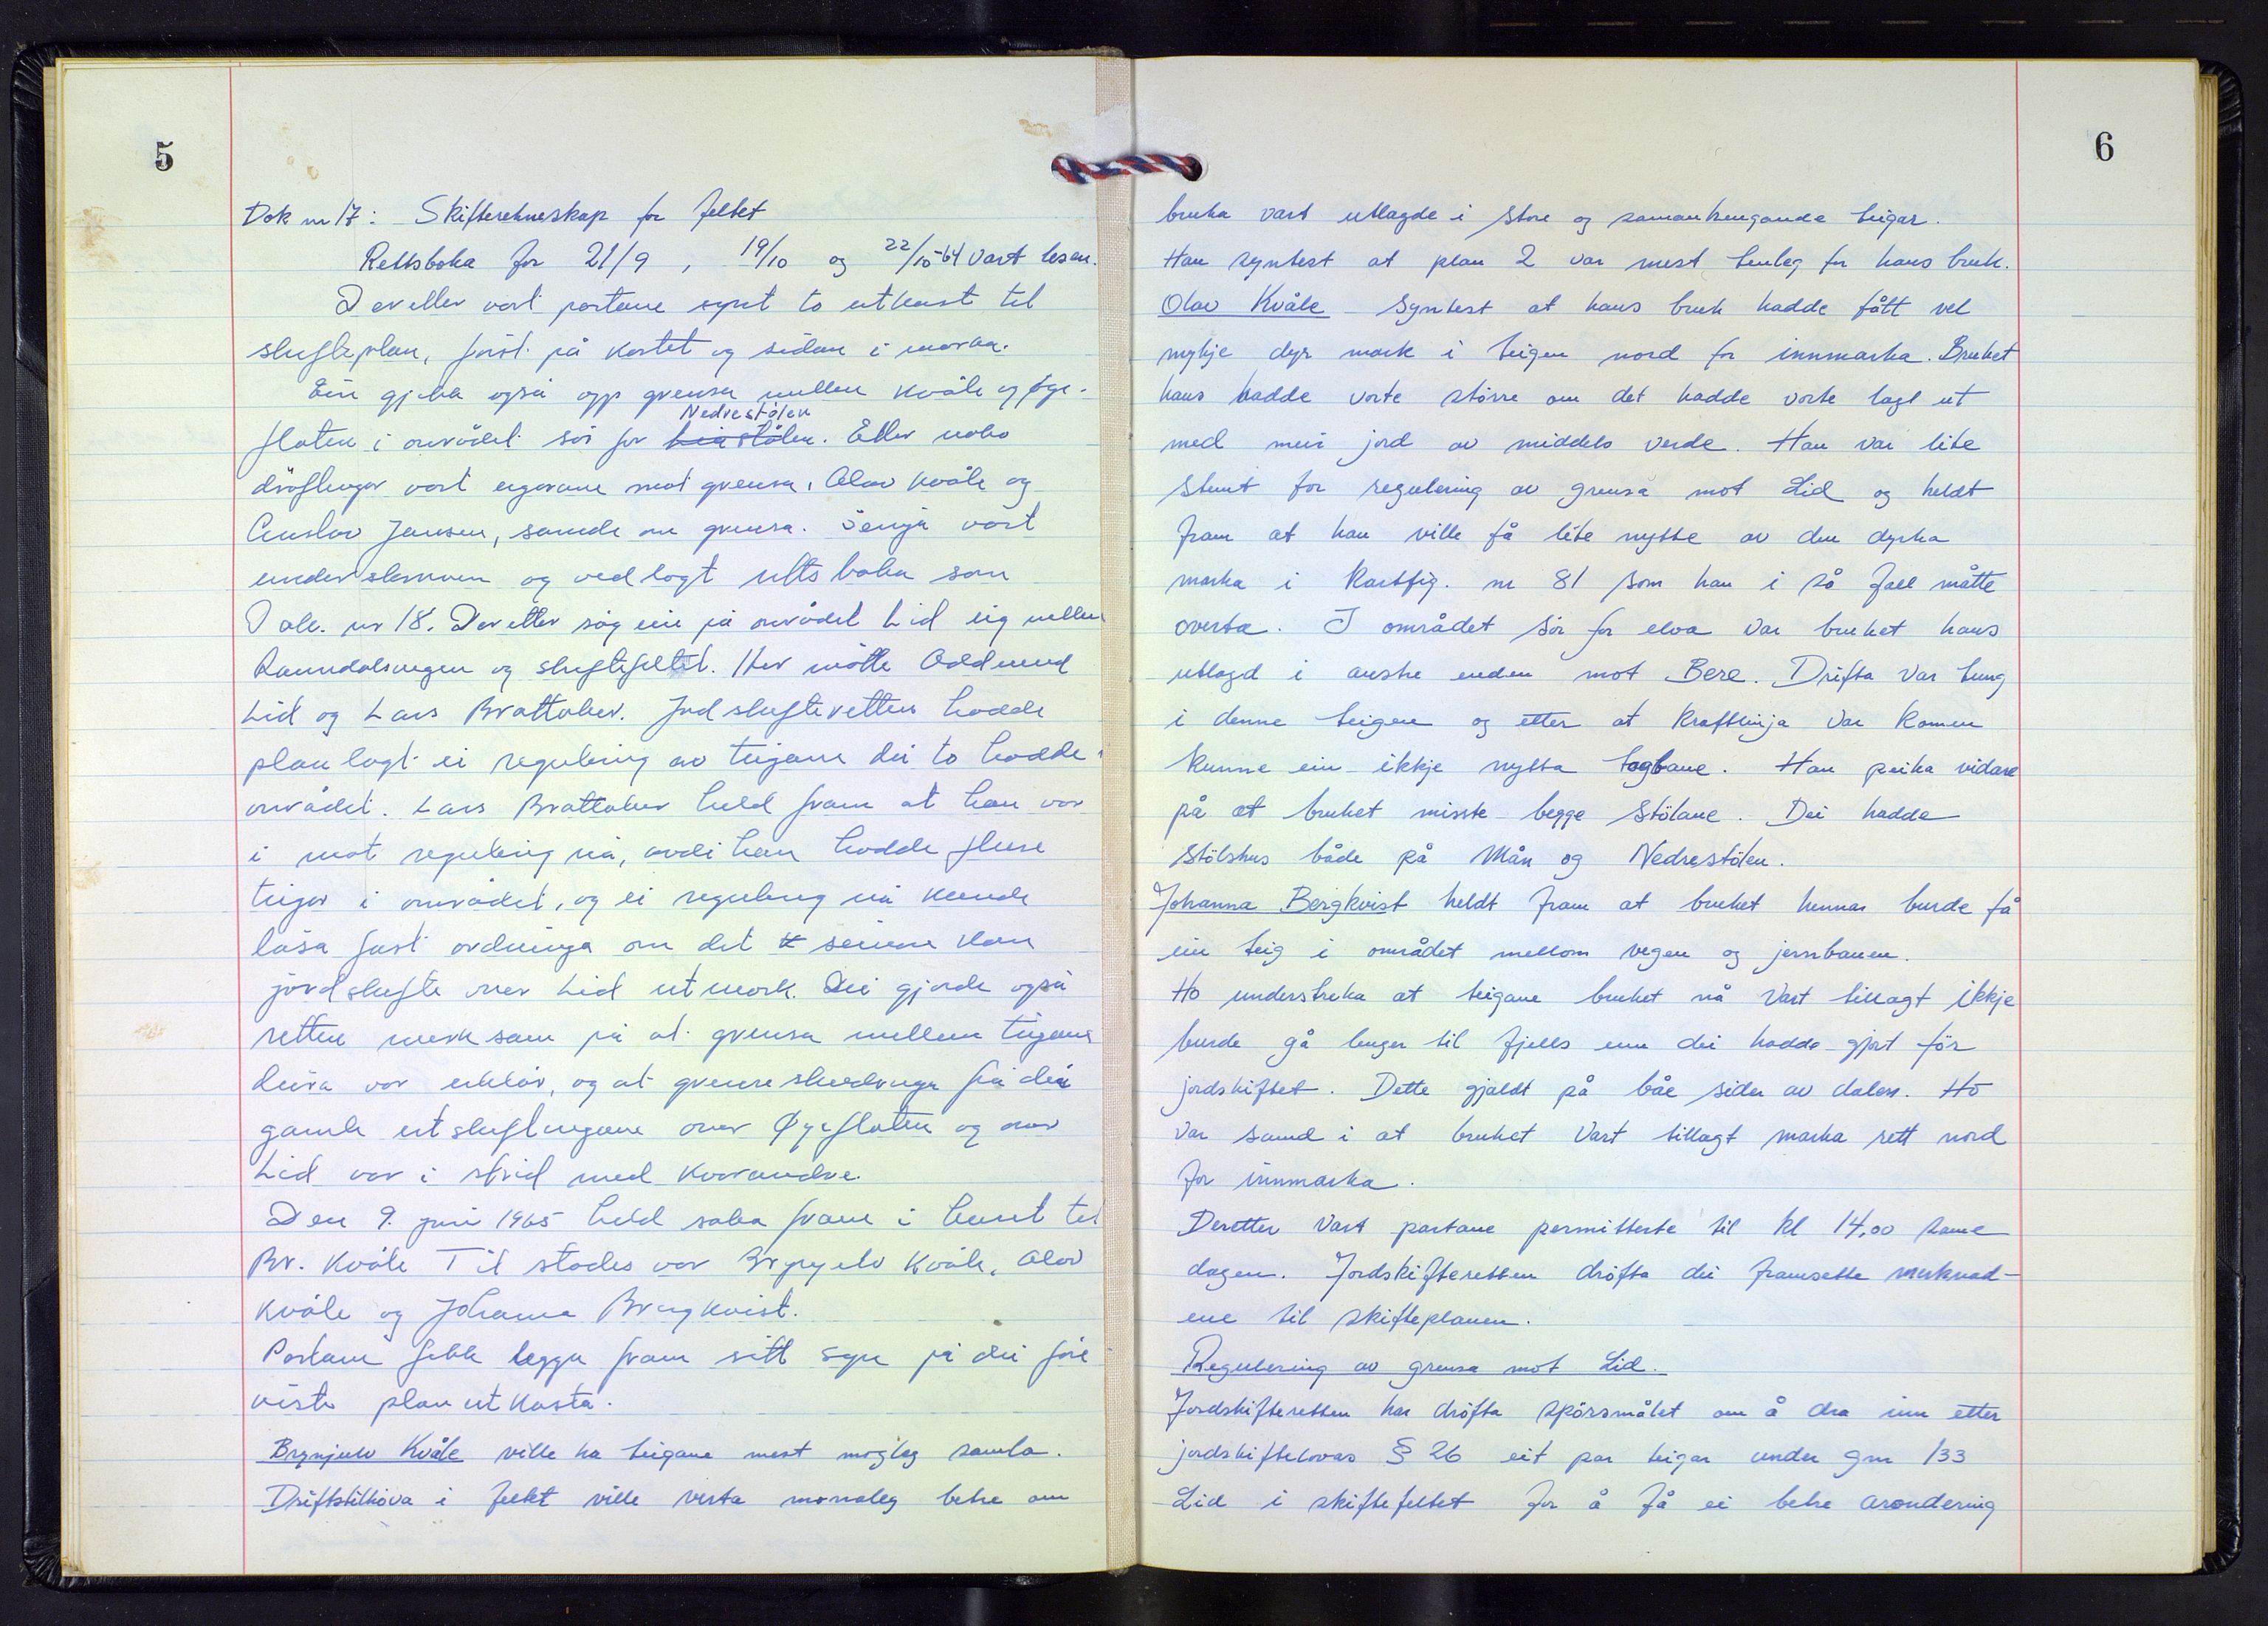 5
Dok nr 17: Skifterekneskap for feltet
Rettsboka for 21/9, 19/10 og 22/10-64 vart lesen.
Deretter vart partane synt to utkast til
skifteplan, først på kartet og sidan i marka.
Ein gjekk også opp grensa mellom Kvåle og Øye-
Nedrestølen
flaten i området sør for Liastølen. Etter noko
drøftingar vart eigarane mot grensa, Olav Kvåle og
Jensen, samde om grensa. Semja vart
underskreven og vedlagt rettsboka som
Dok. nr 18. Deretter såg ein på området Lid eig mellom
Raundalsvegen og skiftefeltet. Her møtte Oddmund
Lid og Lars Brattaker. Jordskifteretten hadde
planlagt ei regulering av teigane dei to hadde i
området. Lars Brattaker held fram at han var
i mot regulering nå, avdi han hadde fleire
teigar i området, og ei regulering nå kunde
låsa fast ordninga om det seinare kom
jordskifte over Lid utmark. Dei gjorde også
retten merksam på at grensa mellom teigane
deira var uklår, og at grenseskildringa frå dei
gamle utskiftingane over Øyeflaten og over
Lid var i strid med kvarandre.
Den 9. juni 1965 held saka fram i huset til
Br. Kvåle Til stades var Brynjulv Kvåle, Olav
Kvåle og Johanna Bergkvist.
Partane fekk leggja fram sitt syn på dei fore
viste planutkasta.
Brynjulv Kvåle ville ha teigane mest mogleg samla.
Driftstilhøva i feltet ville verta monaleg betre om
6
bruka vart utlagde i store og samanhengande teigar.
Han syntest at plan 2 var mest tenleg for hans bruk.
Olav Kvåle syntest at hans bruk hadde fått vel
mykje dyr mark i teigen nord for innmarka. Bruket
hans hadde vorte større om det hadde vorte lagt ut
med meir jord av middels verde. Han var lite
stemt for regulering av grensa mot Lid og heldt
fram at han ville få lite nytte av den dyrka
marka i kartfig. nr 81 som han i så fall måtte
overta. I området sør for elva var bruket hans
utlagd i austre enden mot Bere. Drifta var tung
i denne teigen og etter at kraftlinja var komen
kunne ein ikkje nytta taugbane. Han peika vidare
på at bruket misste begge stølane. Dei hadde
stølshus både på Mån og Nedrestølen.
Johanna Bergkvist heldt fram at bruket hennar burde få
ein teig i området mellom vegen og jernbanen.
Ho understreka at teigane bruket nå vart tillagt ikkje
burde gå lenger til fjells enn dei hadde gjort før
jordskiftet. Dette gjaldt på båe sider av dalen. Ho
var samd i at bruket vart tillagt marka rett nord
for innmarka.
Deretter vart partane permitterte til kl 14,00 same
dagen. Jordskifteretten drøfta dei framsette merknad-
ene til skifteplanen.
Regulering av grensa mot Lid.
Jordskifteretten har drøfta spørsmålet om å dra inn etter
jordskiftelovas § 26 eit par teigar under gnr 133
Lid i skiftefeltet for å få ei betre arondering